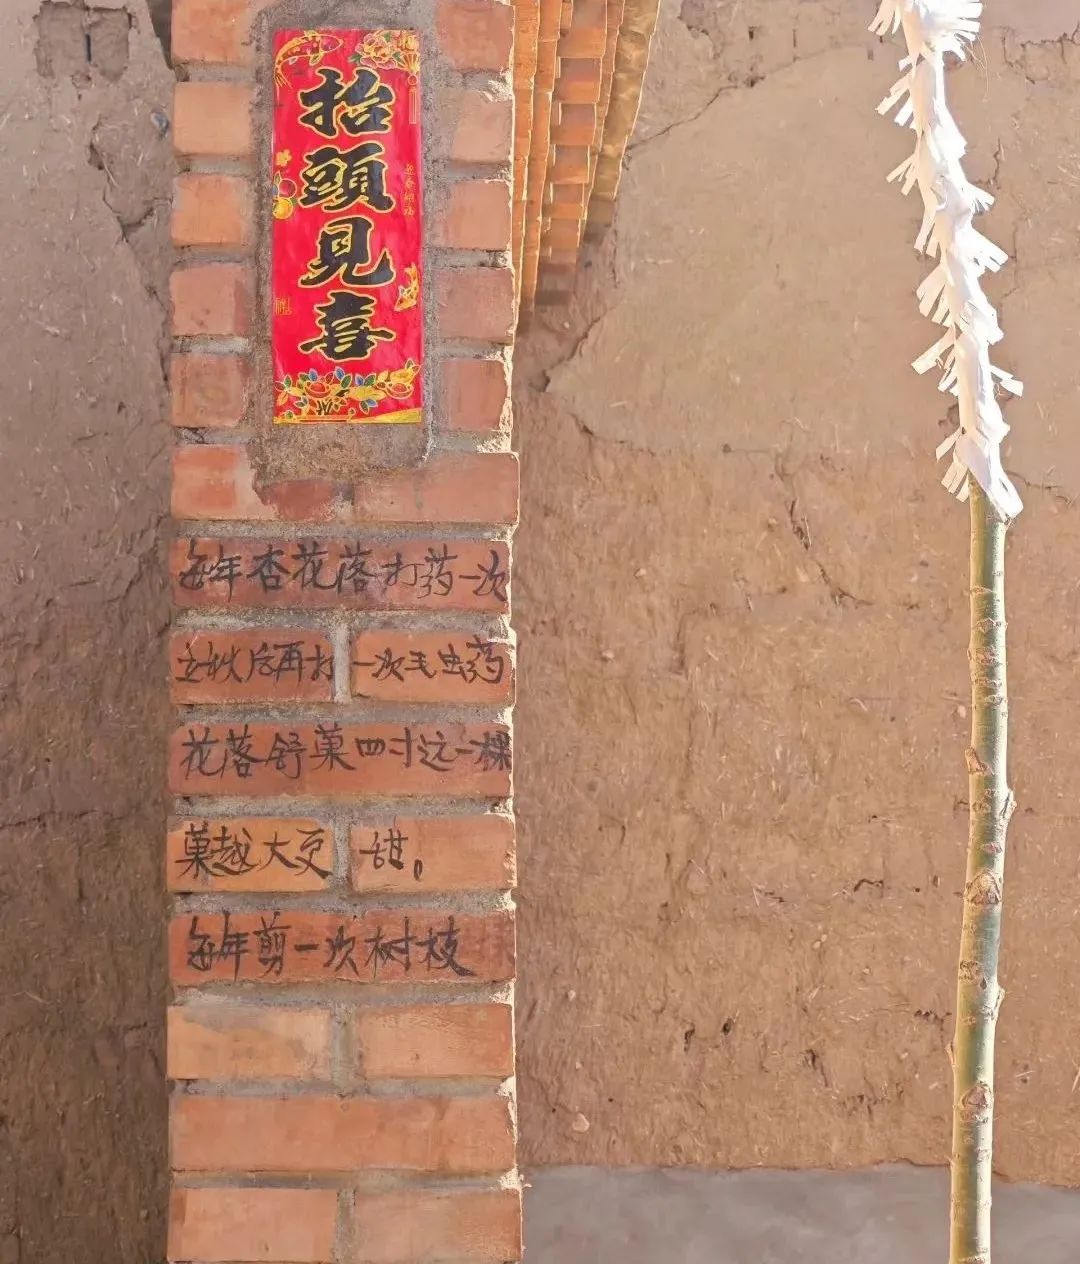 抬頭見喜
每年杏花落打药一次
立秋后再打一次毛虫药
花落舒菓四寸远一棵
菓越大更甜。
每年剪一次树枝